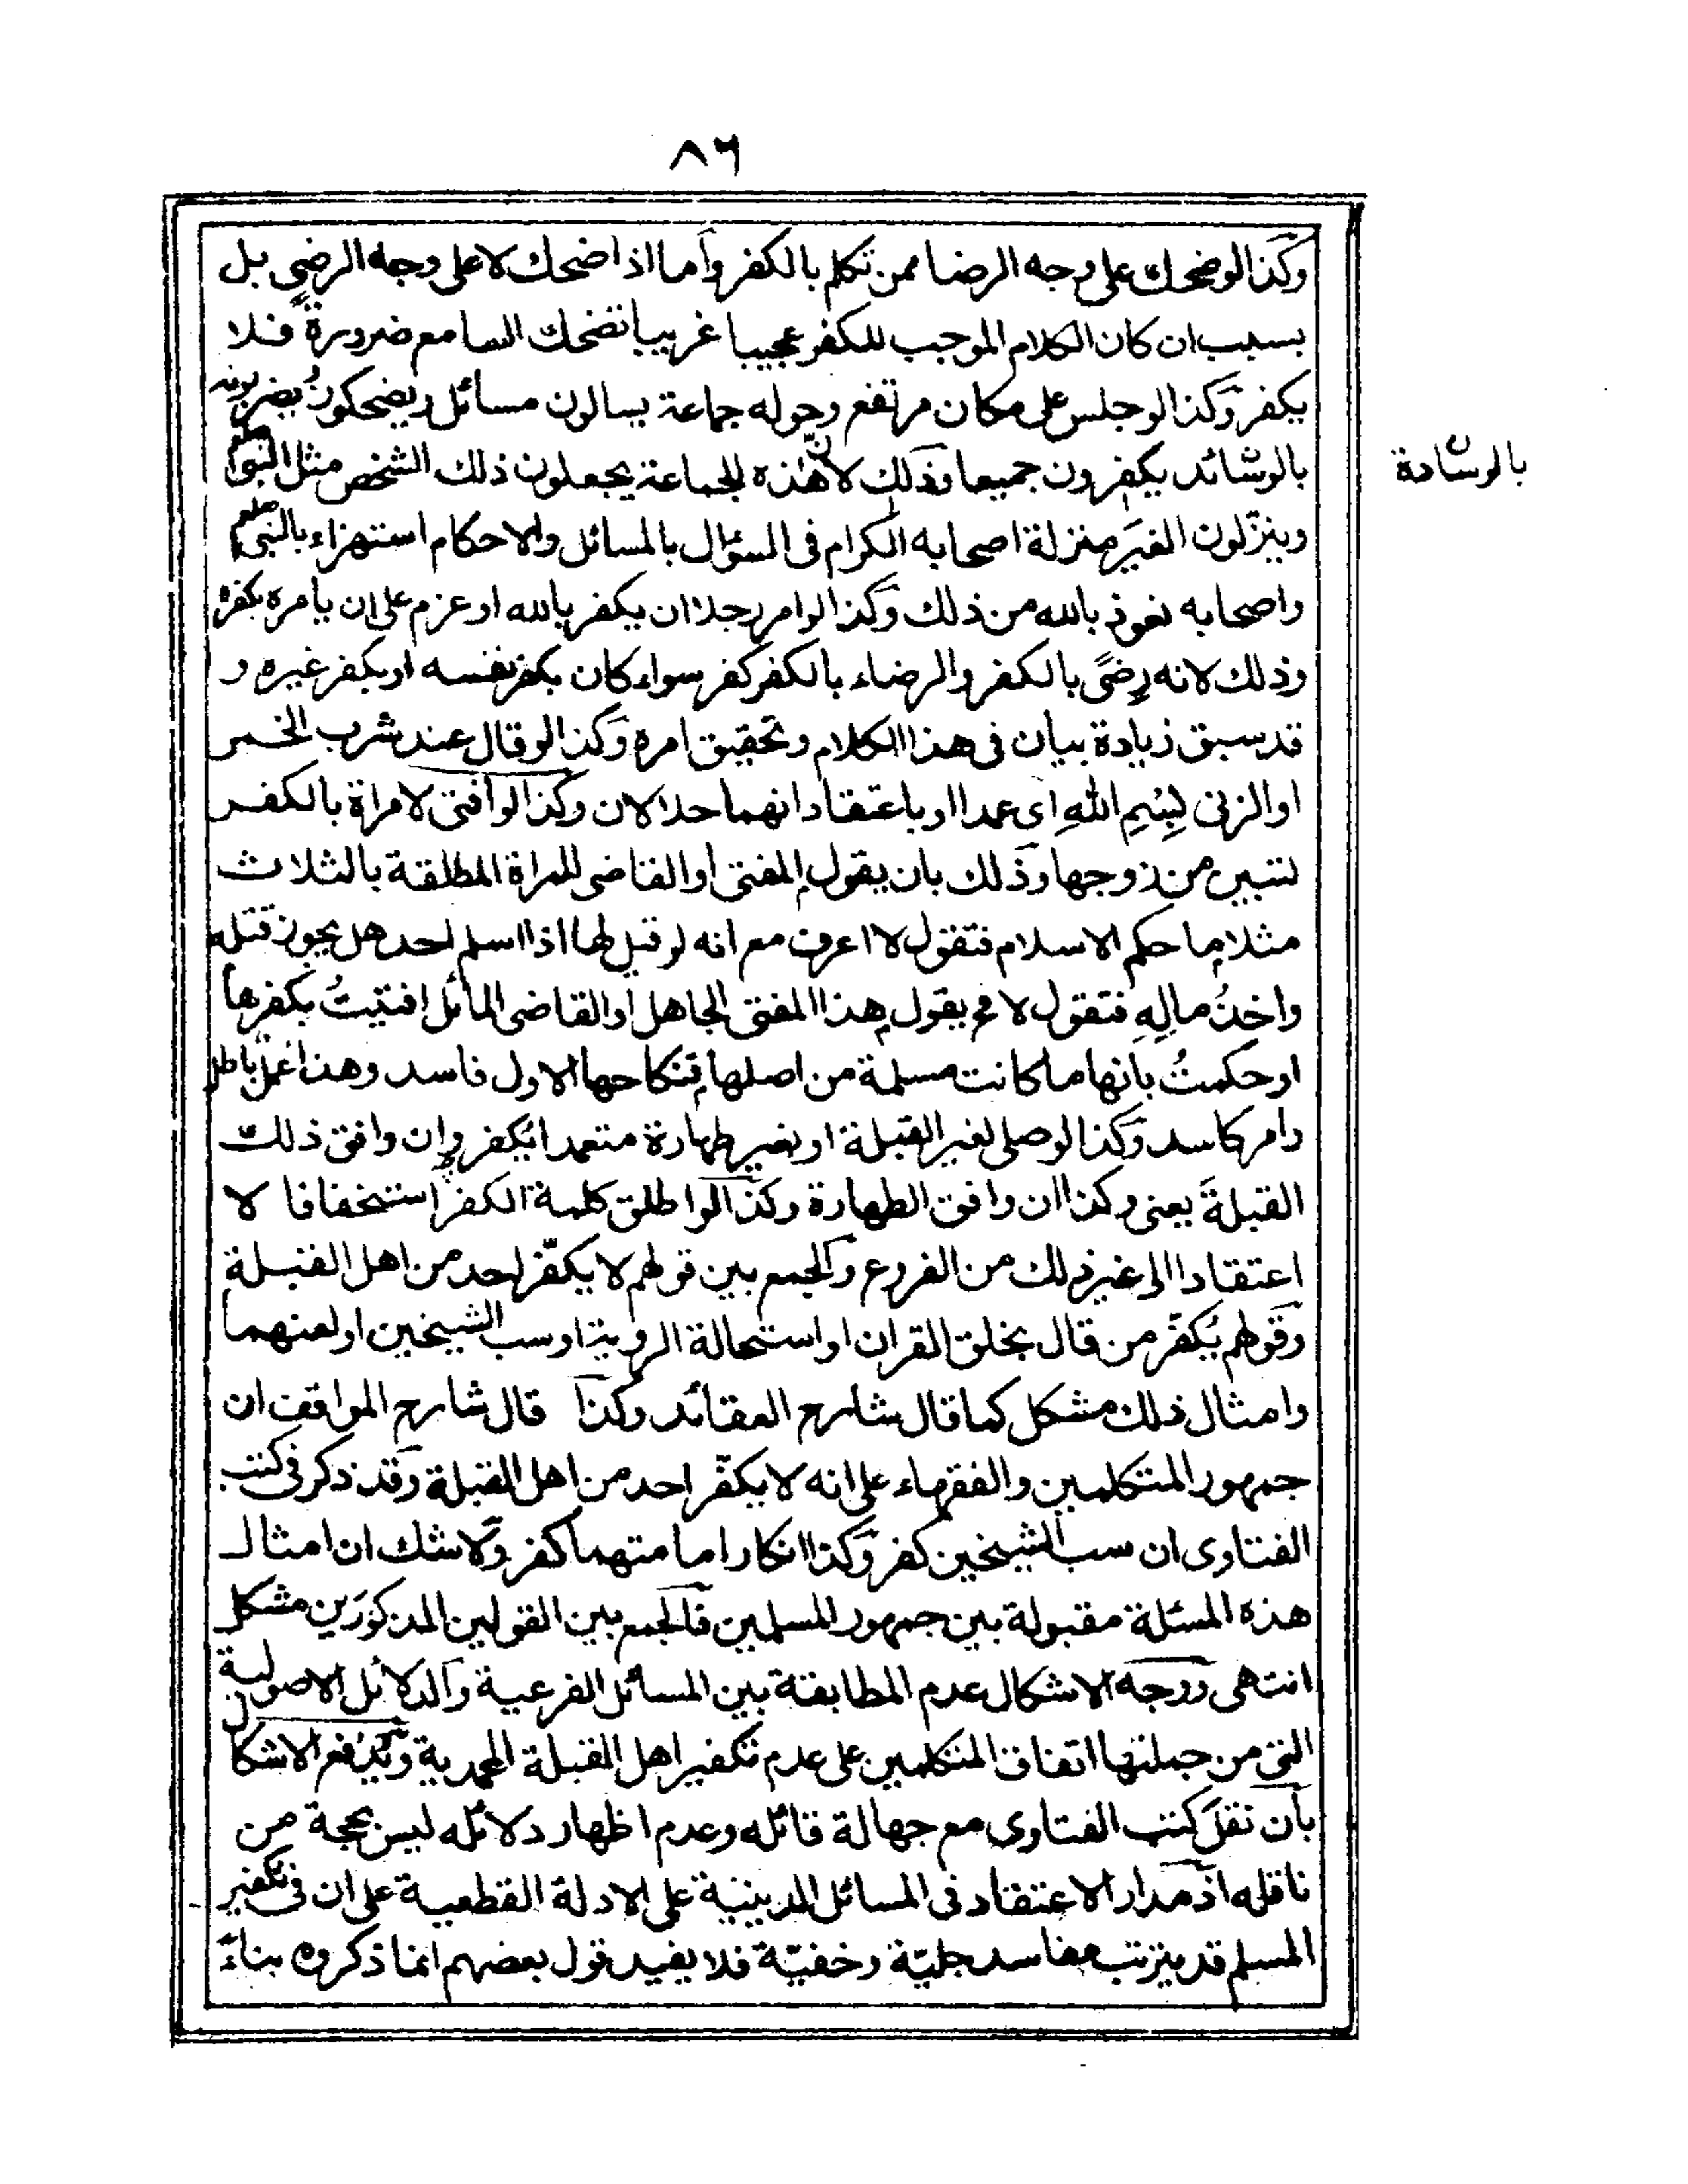 ٨٦
وكذا لو ضحك على وجه الرضا ممن تكلم بالكفر وأما اذا ضحك لا على وجه الرضى بل
بسبب ان كان الكلام الموجب للكفر عجيبا غريبا نضحك السامع ضرورة فلا
يكفر وكذا لو جلس على مكان مرتفع وحوله جماعة يسالون مسائل ويضحكون يضربونه
بالوسائد يكفرون جميعا وذلك لان هذه الجماعة يجعلون ذلك الشخص مثل النبي صلعم
بالوسادة
وينزّلون الغيرَ منزلة اصحابه الكرام فى السؤال بالمسائل والاحكام استهزاء بالنبي صلعم
واصحابه نعوذ بالله من ذلك وكذا لو امر رجلا ان يكفر بالله او عزم على ان يامره بكفره
وذلك لانه رِضًى بالكفر والرضاء بالكفر كفر سواء كان بكفر نفسه او بكفر غيره و
قد سبق زيادة بيان فى هذا الكلام وتحقيق امره وكذا لو قال عند شرب الخمر
او الزنى بِسْمِ اللهِ اى عمدا او باعتقاد انهما حلالان وكذا لو افتى لامراة بالكفر
لتبين من زوجها وذلك بان يقول المفتى او القاضى للمراة المطلقة بالثلاث
مثلا ما حكم الاسلام فتقول لا اعرف مع انه لو قيل لها اذا اسلم احد هل يجوز قتله
واخذُ مالِهِ فتقول لا فح يقول هذا المفتى الجاهل او القاضى المائل افتيتُ بكفرها
او حكمتُ بانها ما كانت مسلمة من اصلها فنكاحها الاول فاسد وهذا عمل باطل
وامر كاسد وكذا لو صلى لغير القبلة او بغير طهارة متعمدا يُكفر وان وافق ذلك
القبلةَ يعنى وكذا ان وافق الطهارة وكذا لو اطلق كلمة الكفر استخفافا لا
اعتقادا الى غير ذلك من الفروع والجمع بين قولهم لا يكفّر احد من اهل القبلة
وقولهم يُكفّر من قال بخلق القران او استحالة الروية او سب الشيخين او لعنهما
وامثال ذلك مشكل كما قال شارح العقائد وكذا قال شارح المواقف ان
جمهور المتكلمين والفقهاء على انه لا يكفّر احد من اهل القبلة وقد ذكر فى كتب
الفتاوى ان سب الشيخين كفر وكذا انكار امامتهما كفر ولا شك ان امثال
هذه المسئلة مقبولة بين جمهور المسلمين فالجمع بين القولين المذكورَين مشكل
انتهى ووجه الاشكال عدم المطابقة بين المسائل الفرعية والدلائل الاصولية
التى من جملتها اتفاق المتكلمين على عدم تكفير اهل القبلة المحمدية ويُدْفع الاشكال
بأن نقلَ كتب الفتاوى مع جهالة قائله وعدم اظهار دلائله ليس بحجة من
ناقله اذ مدار الاعتقاد فى المسائل الدينية على الادلة القطعية على ان فى تكفير
المسلم قد يترتب مفاسد جليّة وخفيّة فلا يفيد قول بعضهم انما ذكروه بناءً